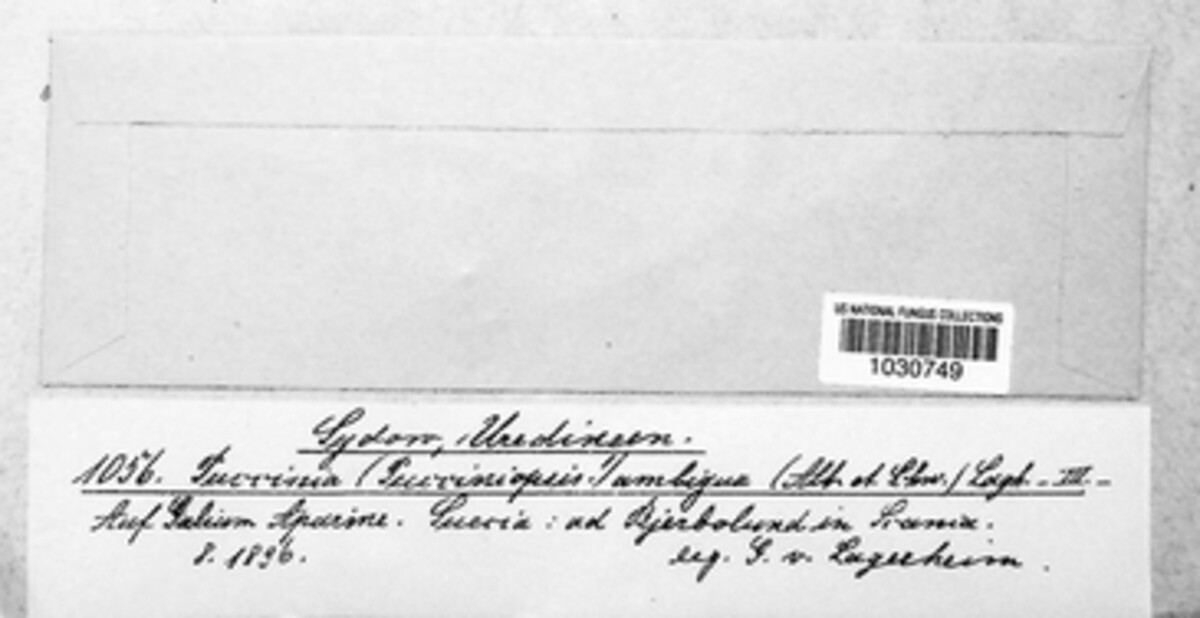 US NATIONAL FUNGUS COLLECTIONS
1030749
Sydow, Uredineen.
1056. Puccinia (Pucciniopsis!) ambigua (Alb. et Schw.) Lagh. - III. -
Auf Galium Aparine. Suecia: ad Bjerbolund in Scania.
8. 1896. leg. G. v. Lagerheim.